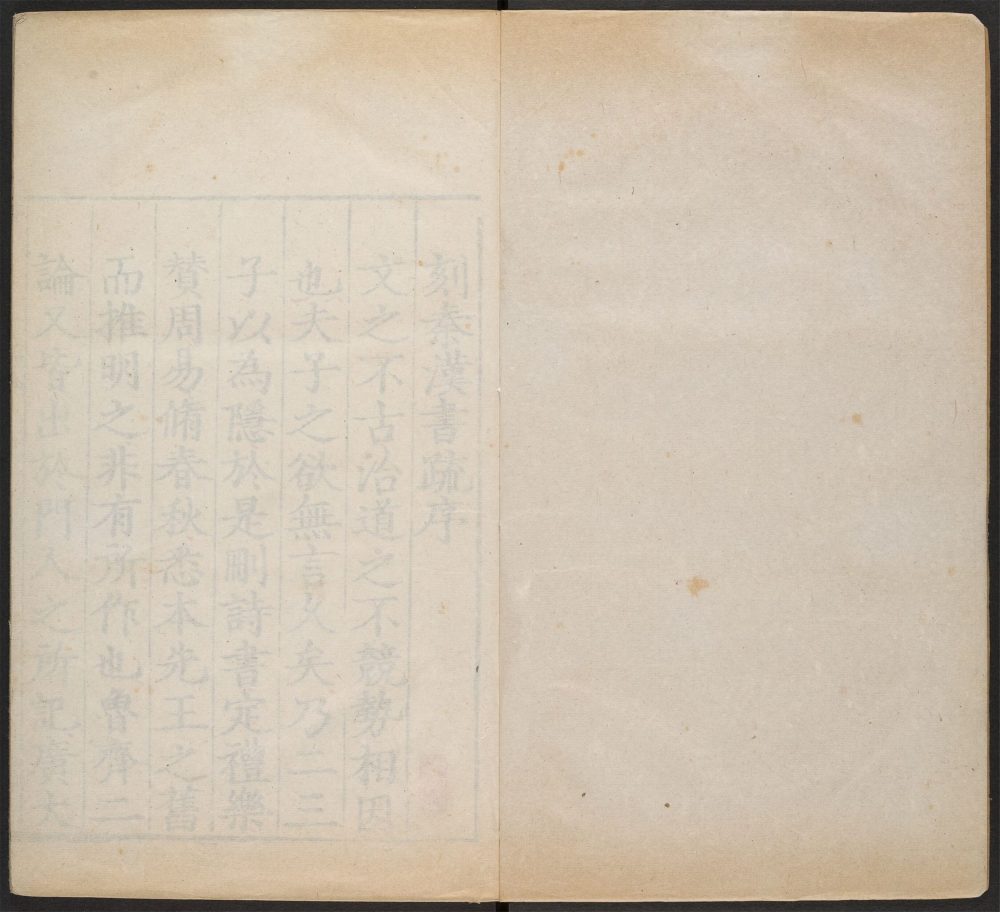 刻秦漢書疏序
文之不古治道之不競勢相因
也夫子之欲無言久矣乃二三
子以為隱於是刪詩書定禮樂
賛周易脩春秋悉本先王之舊
而推明之非有所作也魯齊二
論又皆出於門人之所記廣大